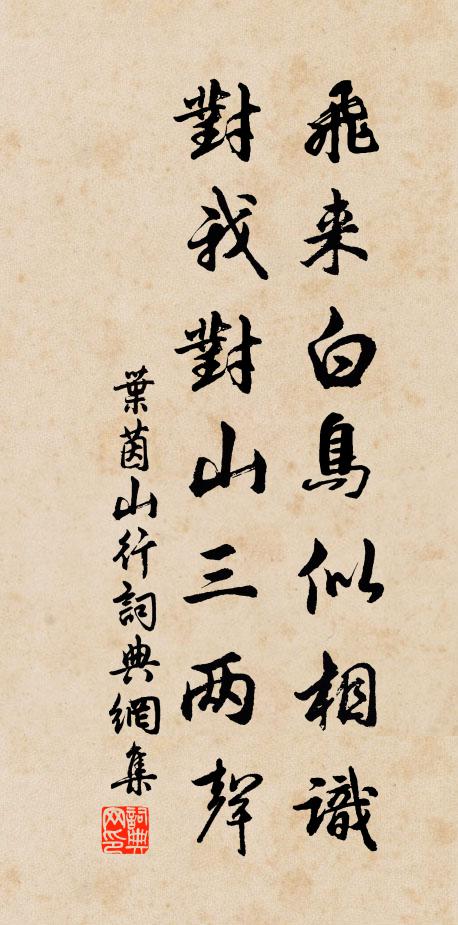 飛来白鳥似相識
對我對山三两聲
葉茵山行詞典網集
詞典网印